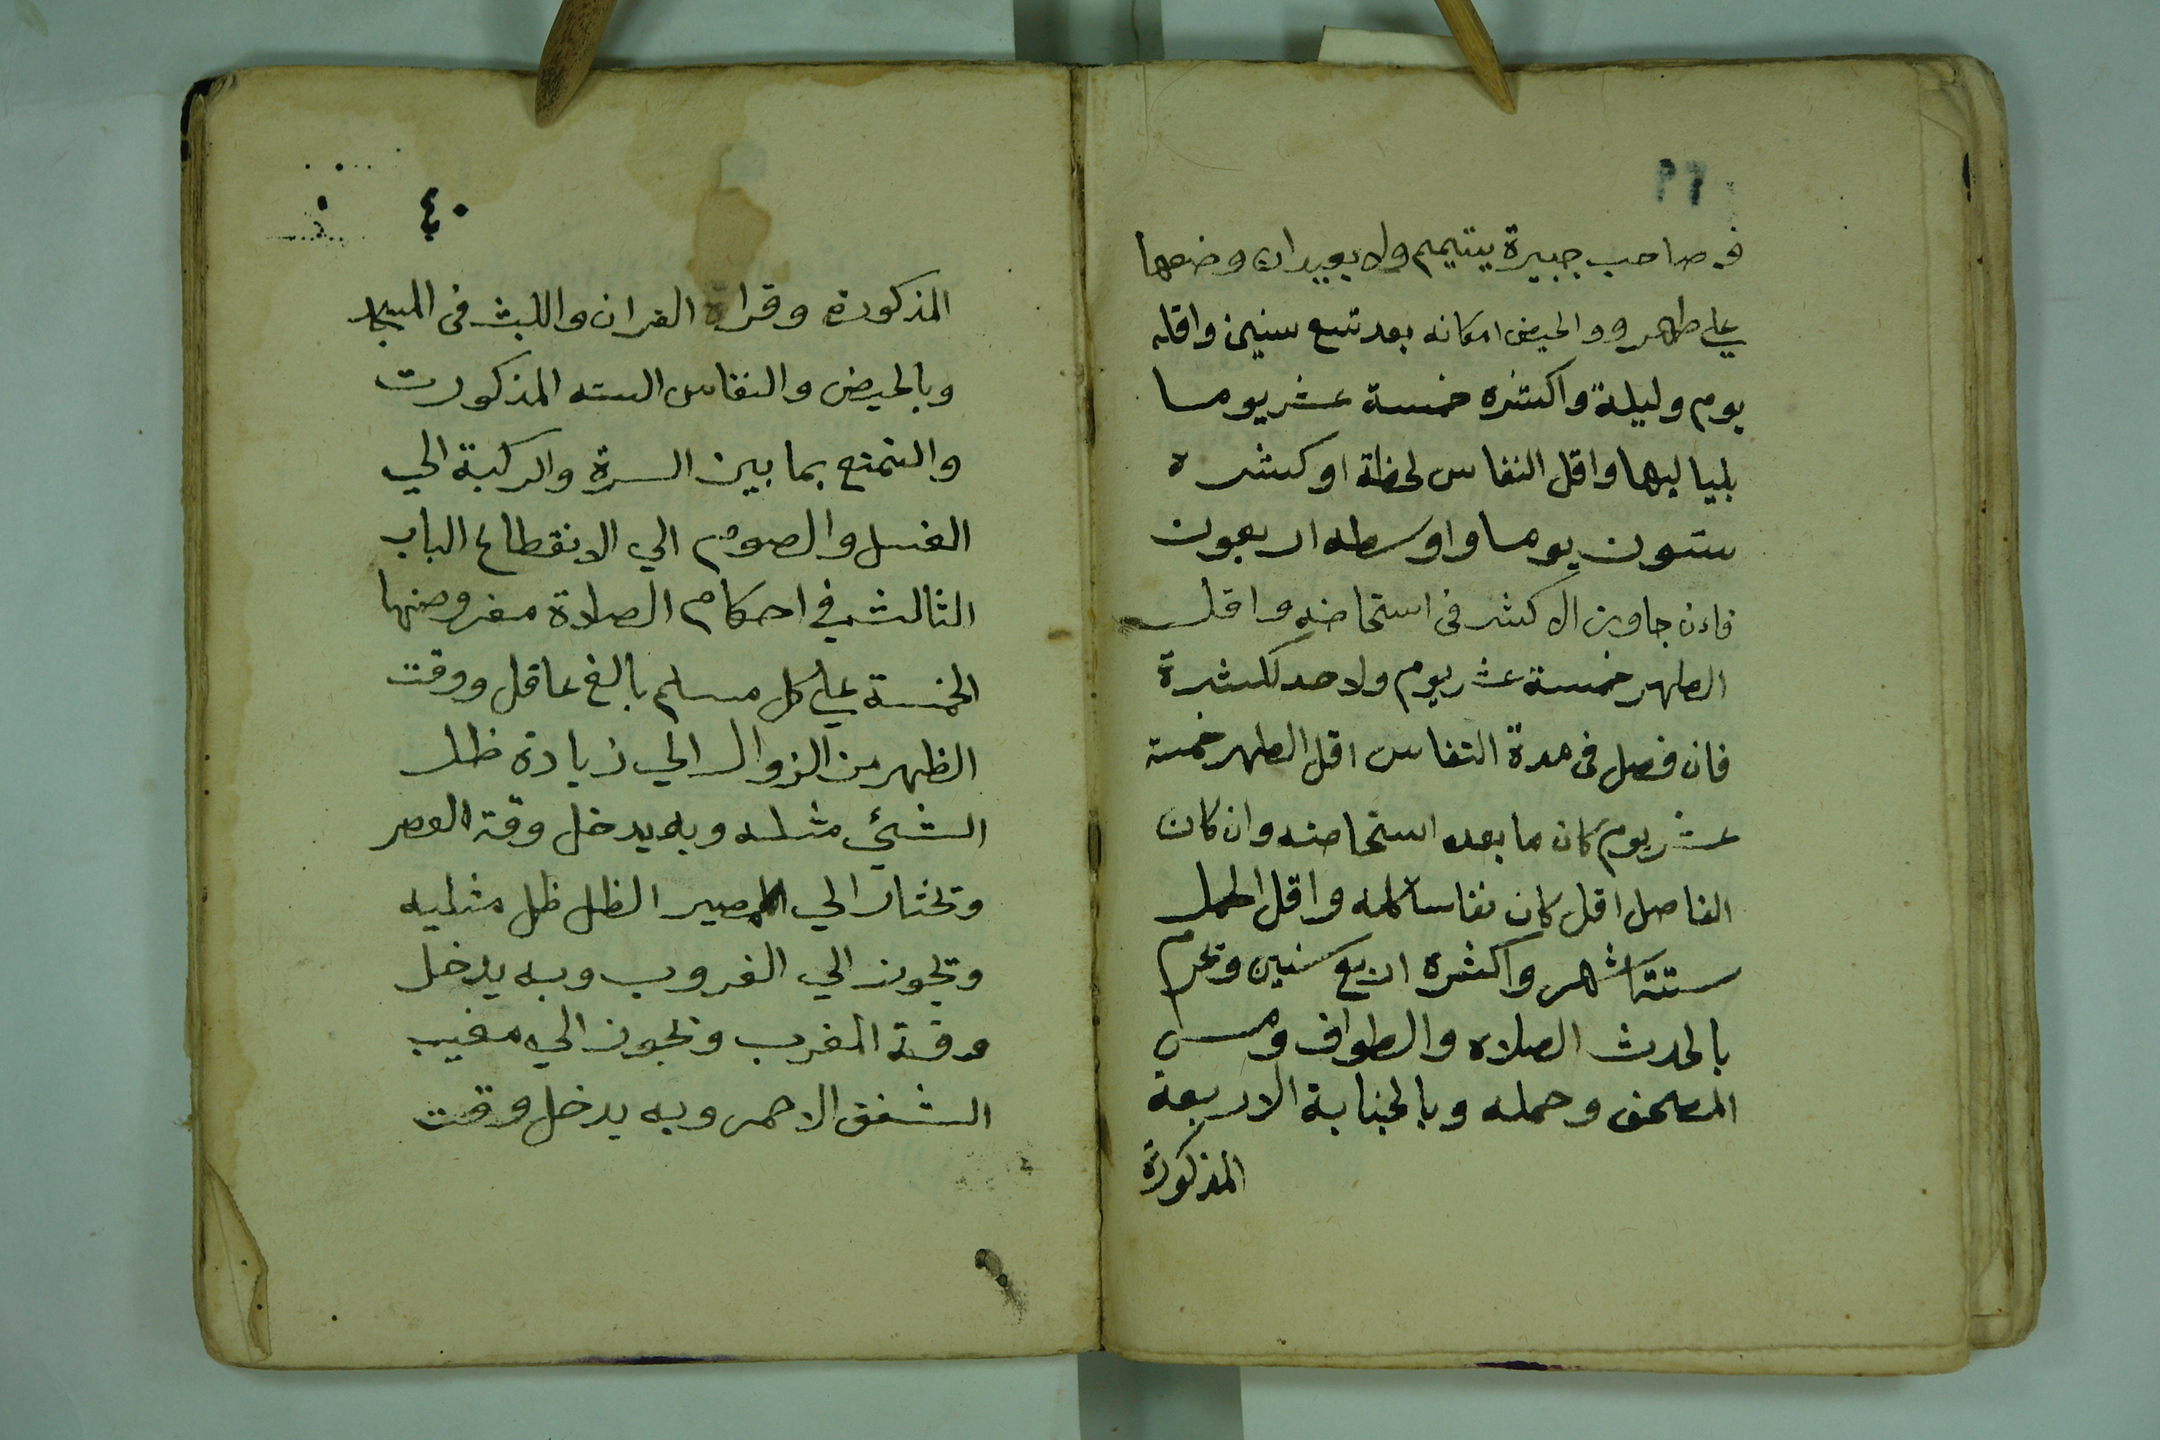 ٣٩
فصاحب جبيرة يتيمم ولا يعيد ان وضعها
علي طهر و والحيض امكانه بعد تسع سنين واقله
يوم وليلة واكثره خمسة عشر يوما
بلياليها واقل النفاس لحظة اوكثره
ستون يوما واوسطه اربعون
فاءن جاوز الاكثر فى استحاضه واقل
الطهر خمسة عشر يوم ولاحد لكثرة
فان فصل فى مدة النفاس اقل الطهر خمسة
عشر يوم كان ما بعده استحاضه وان كان
الفاصل اقل كان نفاسا كله واقل الحمل
ستة اشهر واكثره اربع سنين وتحرم
بالحدث الصلاه والطواف ومس
المصحف وحمله وبالجنابة الاربعة
المذكورة
٤٠
المذكوره وقراة القران واللبث فى المسجد
وبالحيض والنفاس السته المذكورت
والتمتع بما بين السرة والركبة الي
الغسل والصوم الي الانقطاع الباب
الثالث في احكام الصلاة مفروضها
الخمسة علي كل مسلم بالغ عاقل ووقت
الظهر من الزوال الي زيادة ظل
الشئي مثله وبه يدخل وقة العصر
وتختار الي مصير الظل ظل مثليه
وتجوز الي الغروب وبه يدخل
وقة المغرب وتجوز الي مغيب
الشفق الاحمر وبه يدخل وقت